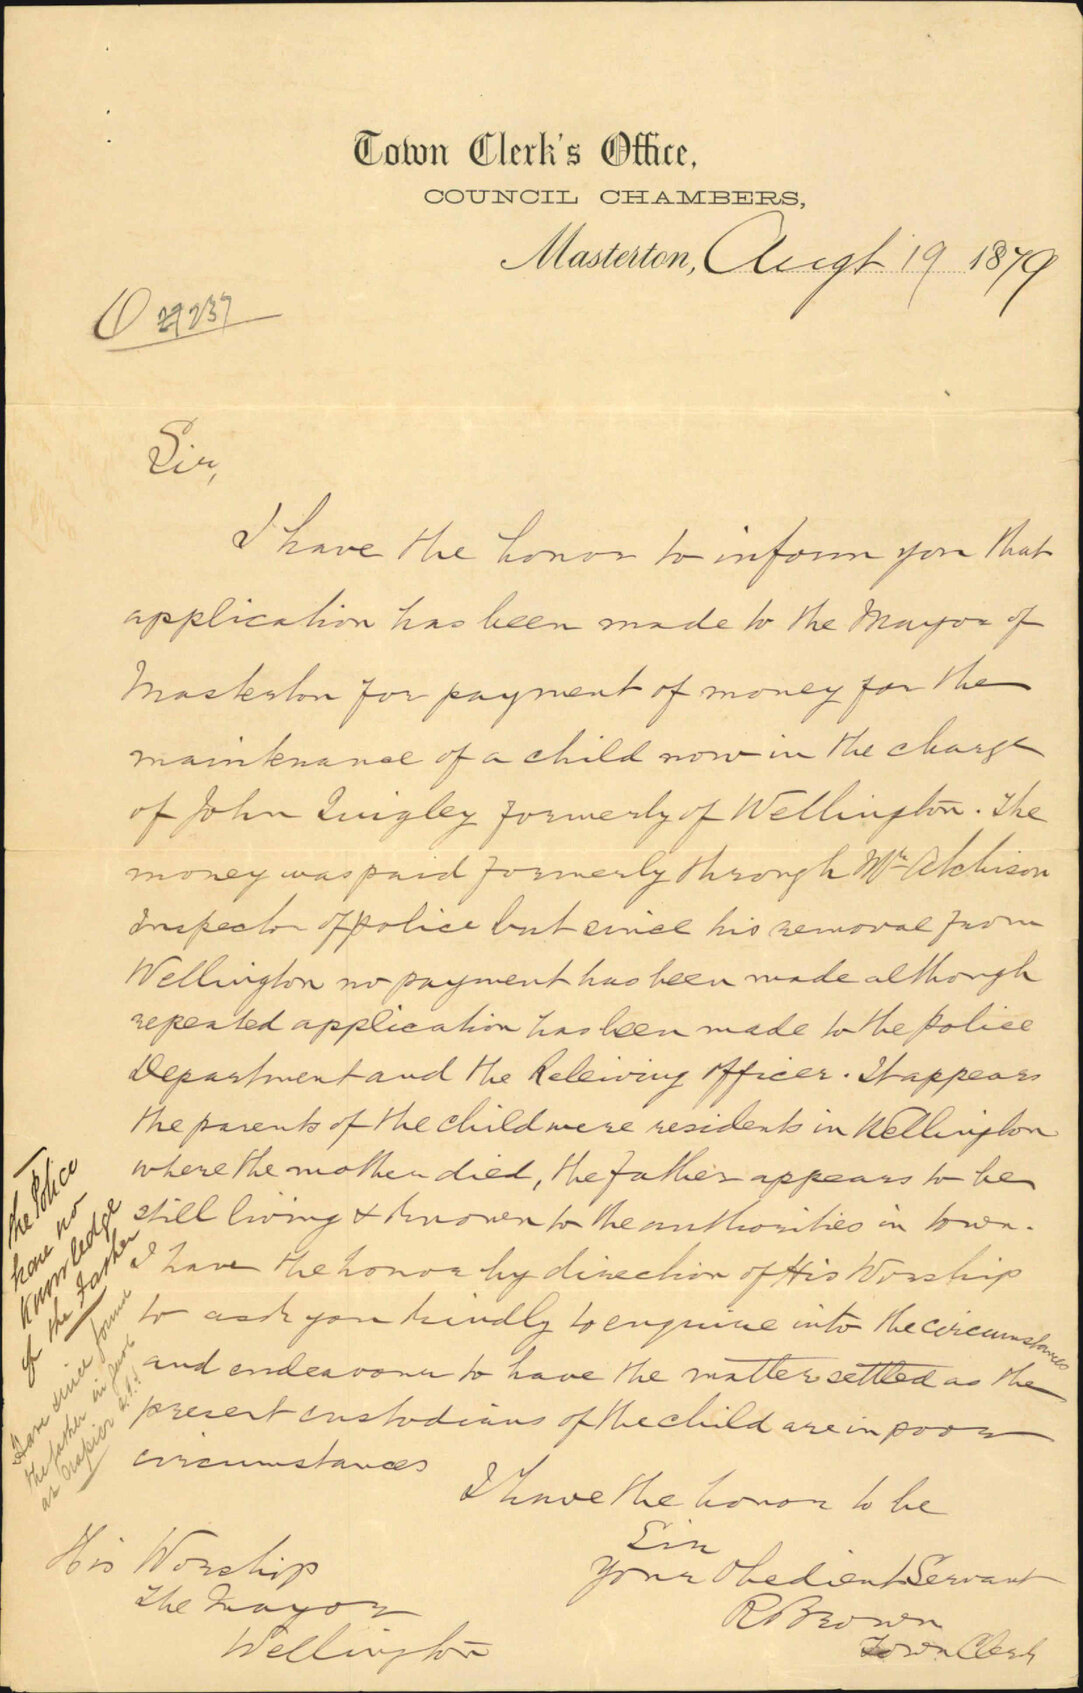 Town Clerk's Office,
COUNCIL CHAMBERS,
Masterton, Augt 19 1879
O 29237
Sir,
I have the honor to inform you that
application has been made to the Mayor of
Masterton for payment of money for the
maintenance of a child now in the charge
of John Quigley formerly of Wellington. The
money was paid formerly through Mr Atchison
Inspector of police but since his removal from
Wellington no payment has been made although
repeated application has been made to the police
Department and the Releiving Officer. It appears
the parents of the child were residents in Wellington
where the mother died, the father appears to be
still living & known to the authorities in town.
I have the honor by direction of His Worship
to ask you kindly to enquire into the circumstances
and endeavour to have the matter settled as the
present custodians of the child are in poor
circumstances
I have the honor to be
Sir
Your Obedient Servant
R Brown
Town Clerk
His Worship
The Mayor
Wellington
The Police
have no
knowledge
of the Father
Have since found
the father in
at Napier